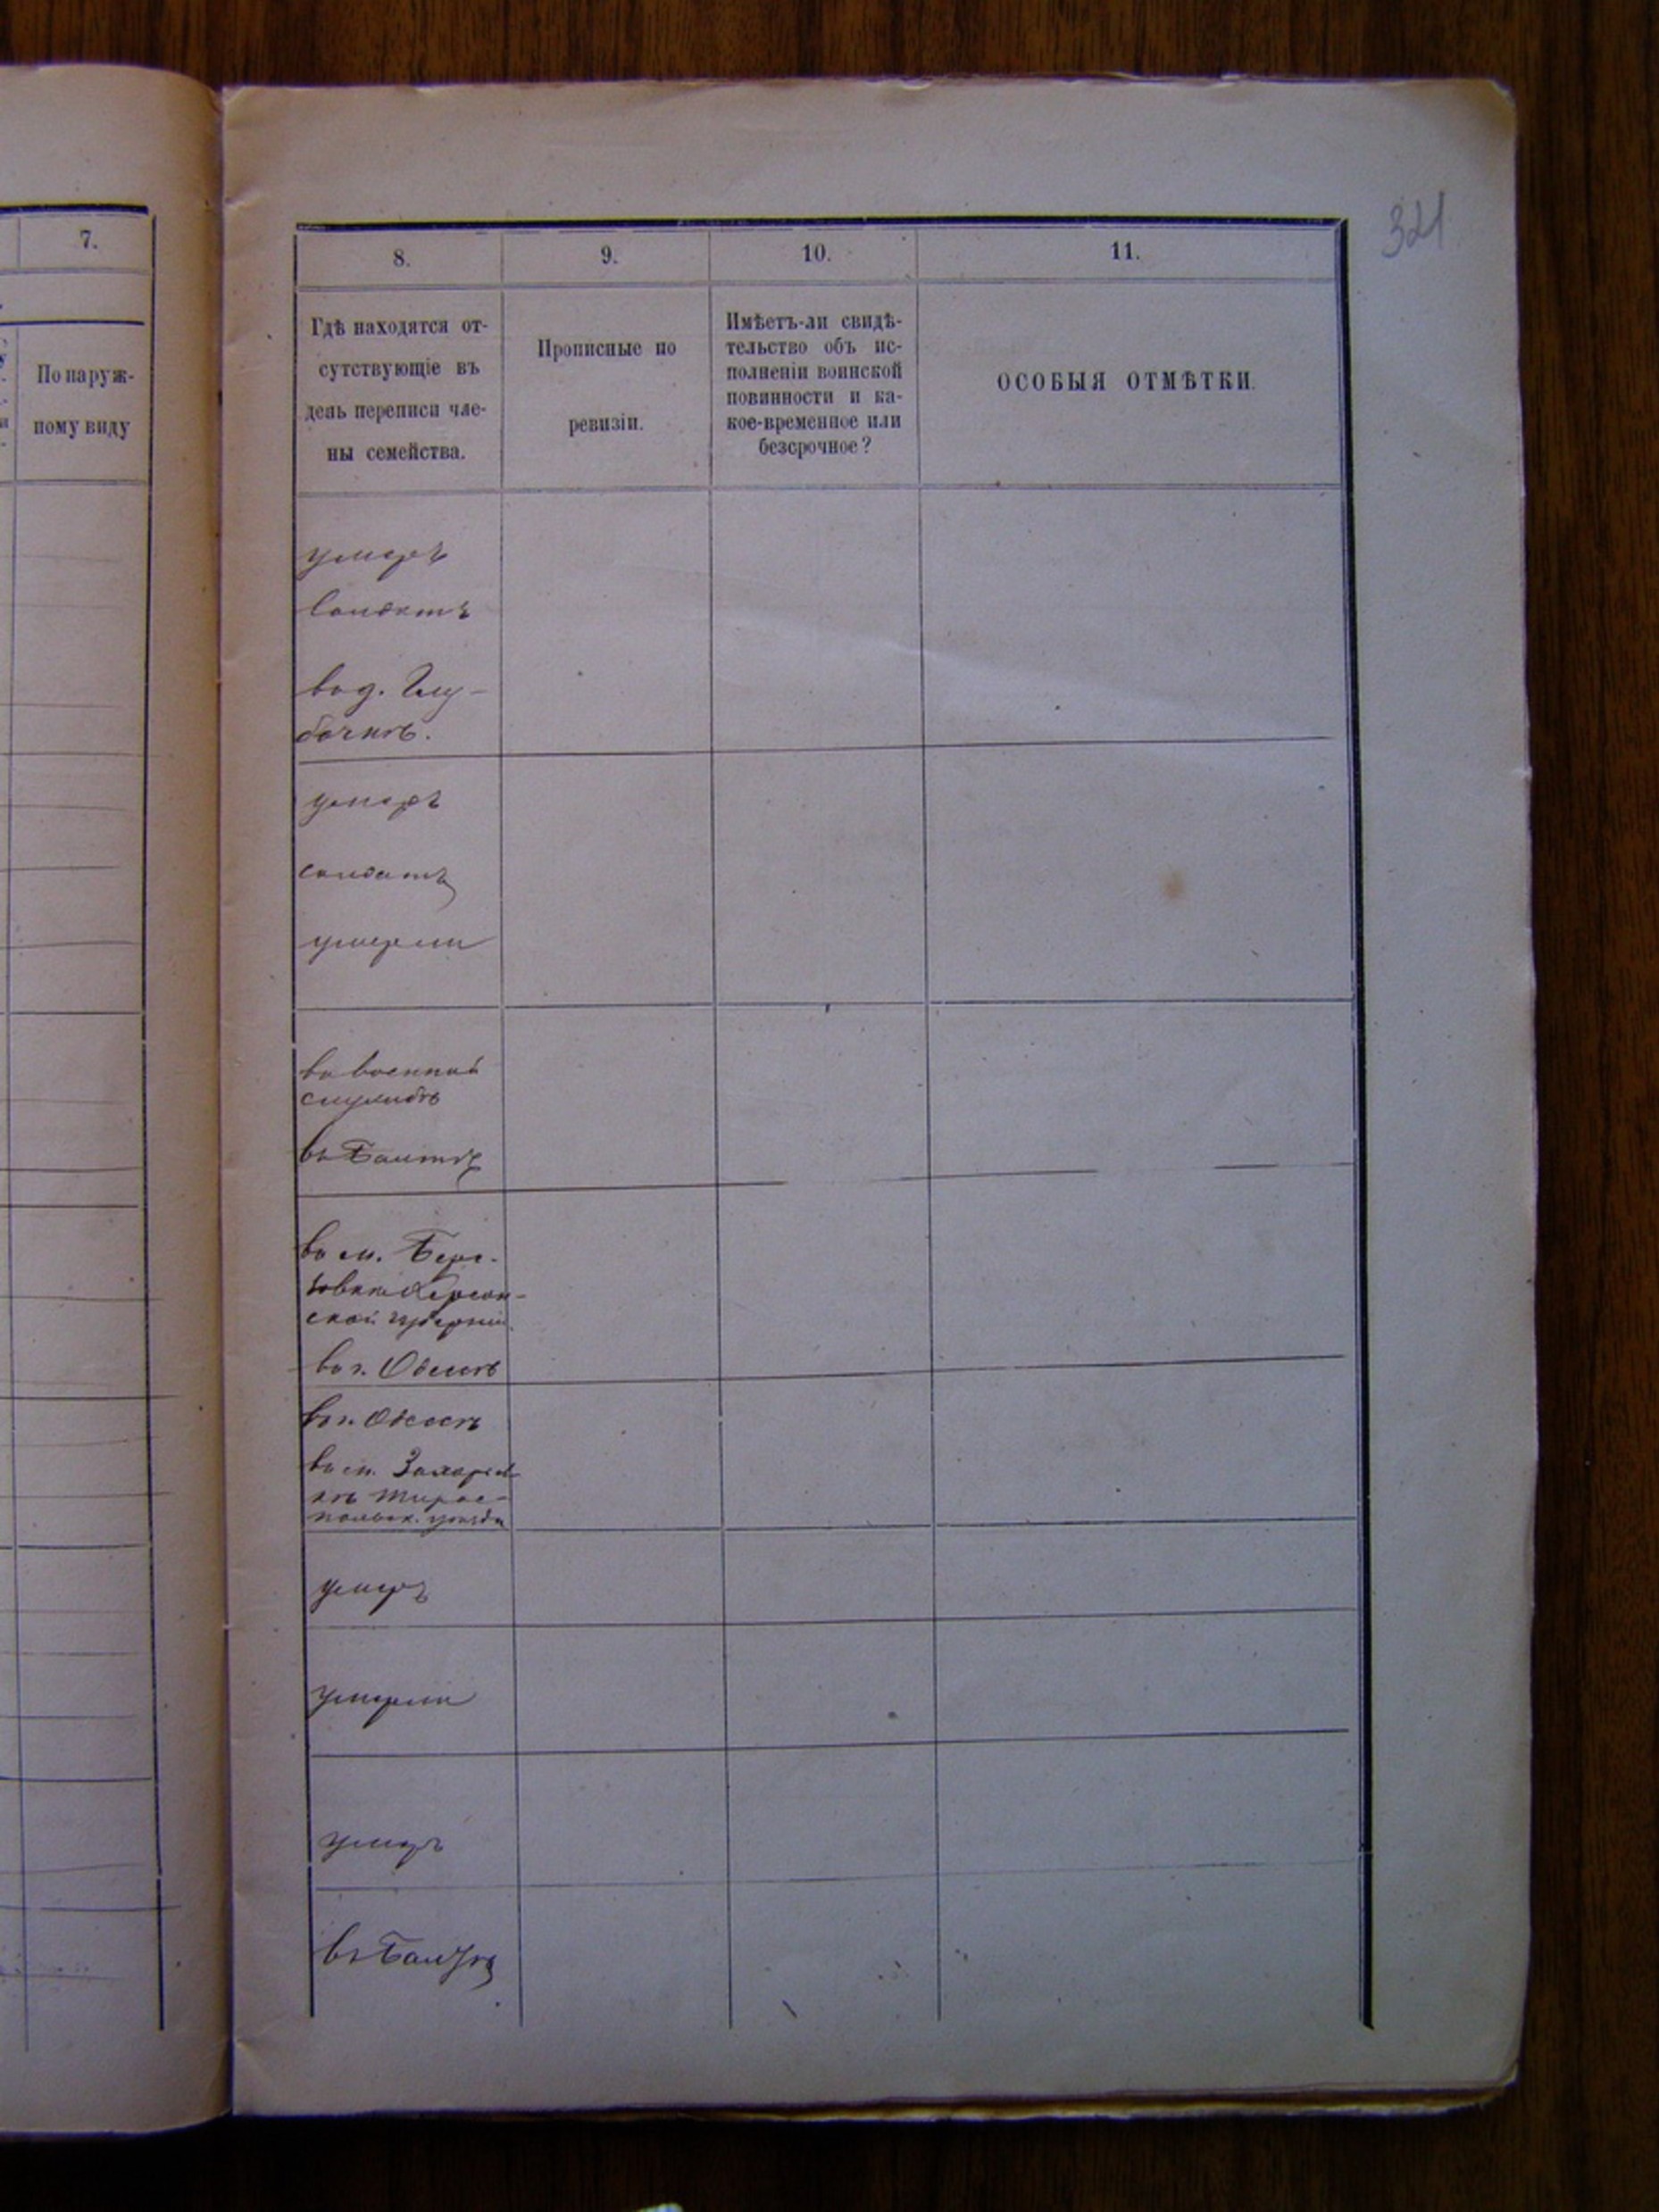 7.
По наруж-
ному виду
321
8.
9.
10.
11.
Гдѣ находятся от-
сутствующіе въ
день переписи чле-
ны семейства.
Прописные по
ревизіи.
Имѣетъ-ли свидѣ-
тельство объ ис-
полненіи воинской
повинности и ка-
кое-временное или
безсрочное?
ОСОБЫЯ ОТМѢТКИ.
умеръ
Солдатъ
въ д. Глу-
бочкѣ.
умеръ
солдатъ
умерли
въ военной
службѣ
въ Балтѣ
въ м. Бере-
зовкѣ Херсон-
ской губерніи.
въ г. Одессѣ
въ г. Одессѣ
въ м. Захарьев-
кѣ Тирас-
польск. уѣзда
умеръ
умерли
умеръ
въ Балтѣ